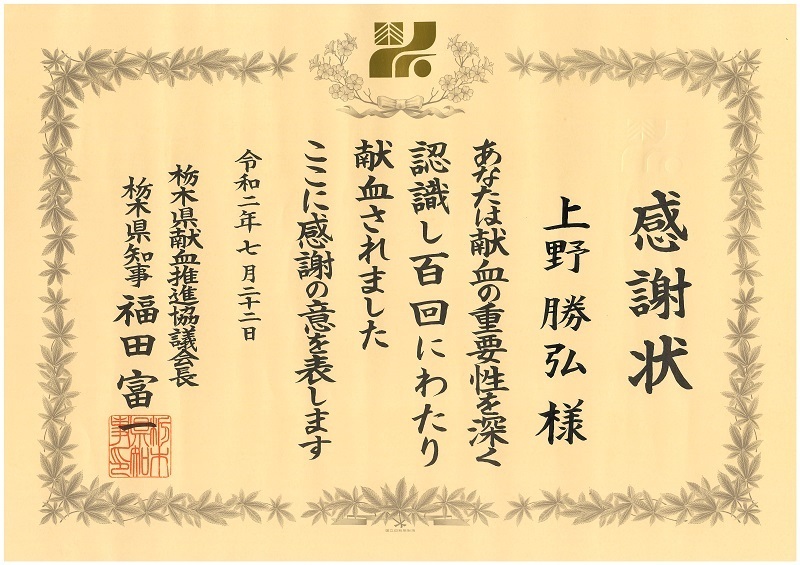 感謝状
上野勝弘様
あなたは献血の重要性を深く
認識し百回にわたり
献血されました
ここに感謝の意を表します
令和二年七月二十二日
栃木県献血推進協議会長
栃木県知事 福田富一
栃木県知事之印